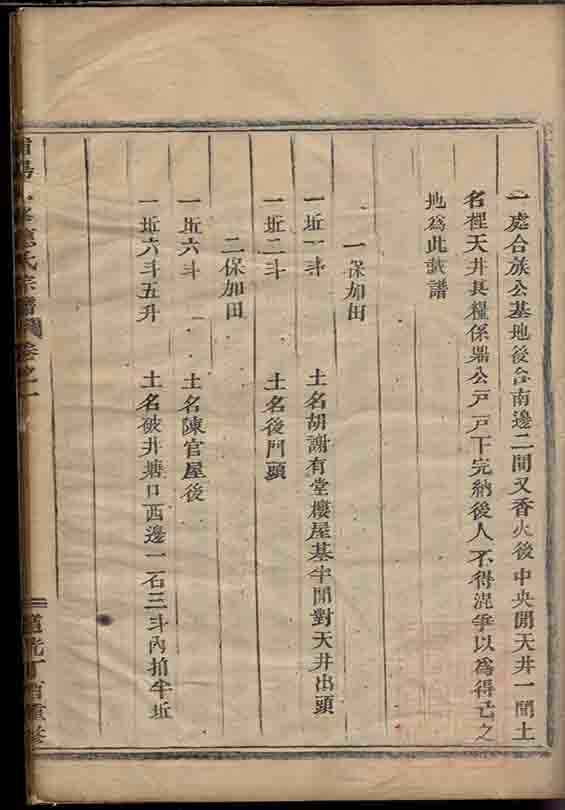 一處合族公基地後合南邊二間又香火後中央開天井一間土
名裡天井其糧係鼎公戸戸下完納後人不得混爭以為得己之
地為此誌譜
一保加田
一坵一斗 土名胡謝有堂樓屋基半間對天井出頭
一坵二斗 土名後門頭
二保加田
一坵六斗 土名陳官屋後
一坵六斗五升 土名破井塘口西邊一石三斗內拍半坵
氏宗譜 卷之一
道光丁酉重修